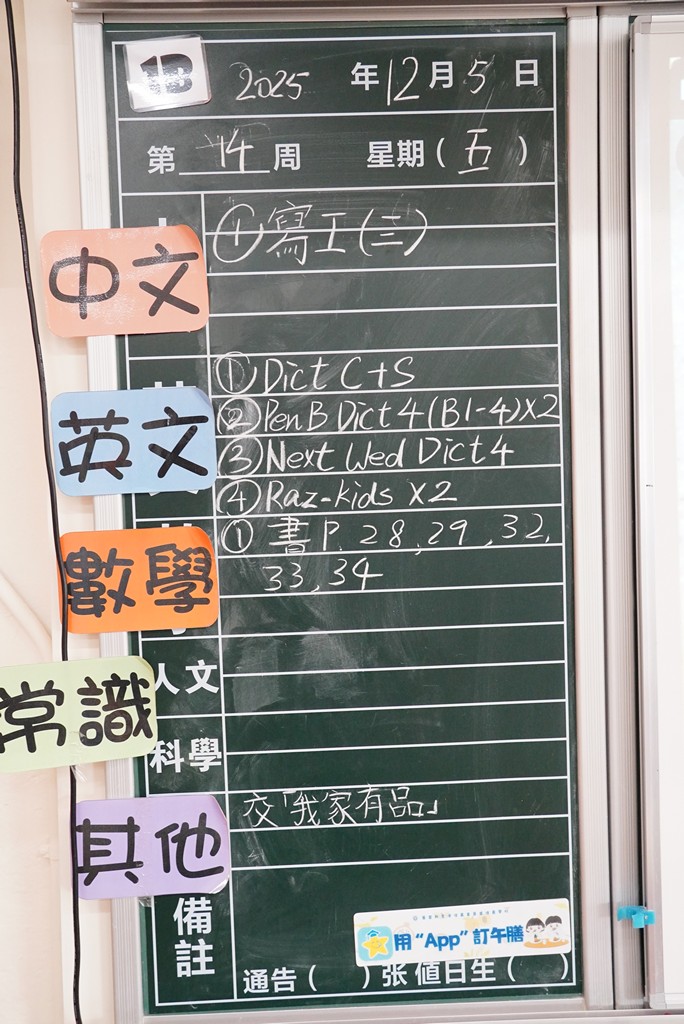 1B 2025 年 12 月 5 日
第 14 周 星期 ( 五 )
中文
① 寫工(三)
英文
① Dict C+S
② Pen B Dict 4 (B1-4) X2
③ Next Wed Dict 4
④ Raz-kids X2
數學
① 書 P. 28, 29, 32,
33, 34
人文
常識
科學
其他
交「我家有品」
備註
用 “App” 訂午膳
通告 ( ) 张 值日生 ( )